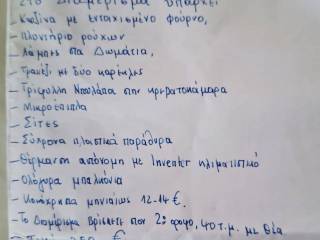 Στο Διαμέρισμα υπάρχει
Κουζίνα με εντοιχισμένο φούρνο,
- Πλυντήριο ρούχων
- Λάμπες στα Δωμάτια,
- Τραπέζι με δύο καρέκλες
- Τρίφυλλη Ντουλάπα στην κρεβατοκάμαρα
- Μικροέπιπλα
- Σίτες
- Σύγχρονα πλαστικά παράθυρα
- Θέρμανση αυτόνομη με Inverter κλιματιστικό
- Ολόγυρα μπαλκόνια
- Κοινόχρηστα μηνιαίως 12-14 €.
- Το Διαμέρισμα βρίσκετε στον 2º όροφο, 40 τ.μ. με θέα
350 €